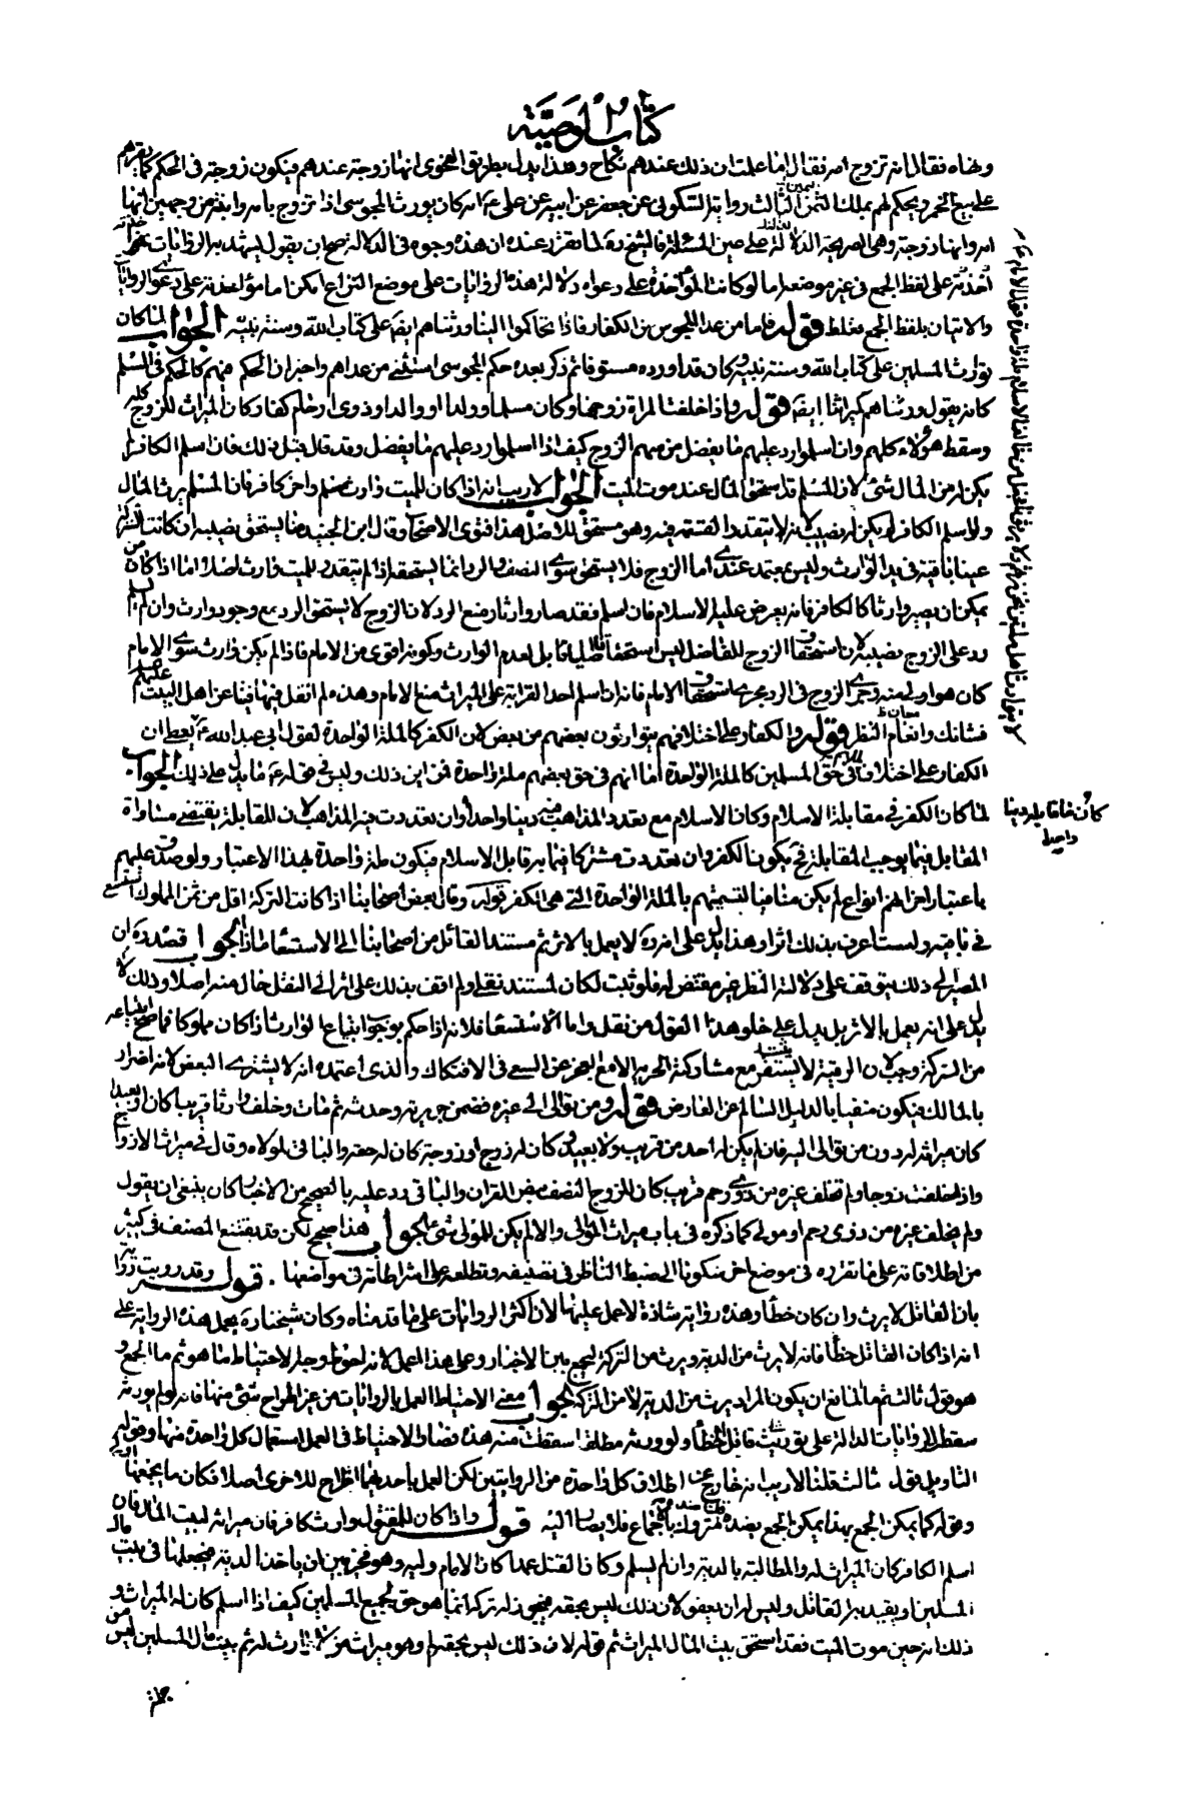 كتاب الوصية
ونهاه فقال انه تزوج امه فقال اما علمت ان ذلك عندهم نكاح وهذا يدل بطريق الفحوى انها زوجة عندهم فيكون زوجة في الحكم كما يقرهم
على بيع الخمر ويحكم لهم بملك الثمن الثالث رواية السكوني عن جعفر عن ابيه عن علي ع انه كان يورث المجوسي اذا تزوج بامه وابنته من وجهين انها
امه وانها زوجته وهي الصريحة الدلالة على عين المسئلة فالشيخ ره لما تقرر عنده ان هذه وجوه في الدلالة صح ان يقول ليشهد به الروايات
على لفظ الجمع في غير موضعه اما لو كانت المؤاخذة على دعواه دلالة هذه الروايات على موضع النزاع امكن اما مؤاخذته على دعوى الروايات
والاتيان بلفظ الجمع فغلط قوله فاما من عدا المجوس من الكفار فاذا تحاكموا الينا ورثناهم ايضا على كتاب الله وسنة نبيه الجواب لما كان
توارث المسلمين على كتاب الله وسنة نبيه وكان قد اورده مستوفا ثم ذكر بعده حكم المجوسي استثنى من عداهم واخبر ان الحكم فيهم كالحكم في المسلم
كانه يقول ورثناهم كميراثنا ايضا قوله واذا خلفت المراة زوجها وكان مسلما وولدا او والدا وذوي ارحام كفار كان الميراث للزوج كله
وسقط هؤلاء كلهم وان اسلموا رد عليهم ما يفضل من سهم الزوج كيف اذا اسلموا رد عليهم ما يفضل وقد قال قبل ذلك فان اسلم الكافر لم
يكن له من المال شئ لان المسلم قد استحق المال عند موت الميت الجواب لا ريب انه اذا كان للميت وارث مسلم واخر كافر فان المسلم يرث المال
ولو اسلم الكافر لم يكن له نصيب لانه لا يتقدر القسمة فيه وهو مستحق للاصل هذا فتوى الاصحاب وقال ابن الجنيد هنا يستحق نصيبه ان كانت التركة
عينا باقية في يد الوارث وليس بمعتمد عندي اما الزوج فلا يستحق سوى النصف والرد انما يستحقه اذا لم يتقدر للميت وارث اصلا اما اذا كان
يمكن ان يصير وارثا كالكافر فانه يعرض عليه الاسلام فان اسلم فقد صار وارثا ومنع الرد لان الزوج لا يستحق الرد مع وجود وارث وان لم يسلم
رد على الزوج نصيبه لان استحقاق الزوج للفاضل ليس استحقاقا اصليا بل لعدم الوارث وكونه اقوى من الامام فاذا لم يكن وارث سوى الامام
كان هو اولى منه وجرى الزوج في الرد مجرى استحقاق الامام فانه ان اسلم احد القرابة على الميراث منع الامام وهذه لم انقل فيها فتيا عن اهل البيت عليهم السلام
فشانك وانعام النظر قوله والكفار على اختلافهم يتوارثون بعضهم من بعض لان الكفر كالملة الواحدة لقول ابي عبد الله ع
الكفار على اختلافهم في حق المسلمين كالملة الواحدة اما انهم في حق بعضهم ملة واحدة فمن اين ذلك وليس في قوله ع ما يدل على ذلك الجواب
لما كان الكفر في مقابلة الاسلام وكان الاسلام مع تعدد المذاهب فيه دينا واحدا وان تعددت فيه المذاهب لان للمقابلة يقتضي مساواة
المقابل فيما يوجب المقابلة فيكون الكفر وان تعددت مشتركا فيما به قابل الاسلام فيكون ملة واحدة بهذا الاعتبار ولو صدق عليهم
باعتبار اخر انهم انواع لم يكن منافيا لتسميتهم بالملة الواحدة التي هي الكفر قوله وقال بعض اصحابنا اذا كانت التركة اقل من ثمن المملوك استسعى
في باقيه ولست اعرف بذلك اثرا وهذا يدل على انه ره لا يعمل بالاثر ثم مستند القائل من اصحابنا الى الاستسعاء ماذا الجواب قصده ره ان
المصير الى ذلك يتوقف على دلالة النظر غير مقتض له فلو ثبت لكان المستند نقلي ولم اقف بذلك على اثر اي النقل خال منه اصلا وذلك لا
يدل على انه يعمل بالاثر بل يدل على خلو هذا القول من نقل واما الاستسعاء فلانه اذا حكم بوجوب ابتياع الوارث اذا كان مملوكا فما صح ابتياعه
من التركة وجب لان الرقية لا يستقر مع مشاركة الحرية الا مع العجز عن السعي في الافتكاك والذي اعتمده انه لا يشتري البعض لانه اضرار
بالمالك فيكون منفيا بالدليل السالم عن المعارض قوله ومن توالى الى غيره فضمن جريرته وحدثه ثم مات وخلف وارثا قريبا كان او بعيدا
كان ميراثه له دون من توالى اليه فان لم يكن له احد من قريب ولا بعيد وكان له زوج او زوجة كان له حقه والباقي لمولاه وقال في ميراث الازواج
واذا خلفت زوجا ولم تخلف غيره من ذوي رحم قريب كان للزوج النصف بنص القران والباقي رد عليه بالصحيح من الاخبار كان ينبغي ان يقول
ولم يخلف غيره من ذوي رحم او مولى كما ذكره في باب ميراث الموالي والا لم يكن للمولى شئ الجواب هذا صحيح لكن قد يقتنع المصنف في كثير
من اطلاقاته على ما تقرره في موضع اخر سكونا الى ضبط الناظر في تصنيفه وتطلعه على اشتراطاته في مواضعها . قوله وقد رويت رواية
بان القاتل لا يرث وان كان خطأ وهذه رواية شاذة لا عمل عليها لان اكثر الروايات على ما قدمناه وكان شيخنا ره يحمل هذه الرواية على
انه اذا كان القاتل خطأ فانه لا يرث من الدية ويرث من التركة ليجمع بين الاخبار وعلى هذا العمل لانه احوط وجه الاحتياط ما هو ثم ما الجمع و
هو قول ثالث ثم ما المانع ان يكون المراد يرث من الدية لا من التركة الجواب معنى الاحتياط العمل بالروايات من غير اطراح شئ منها فانه لو لم يورثه
سقط الروايات الدالة على توريث قاتل الخطأ ولو ورثه مطلقا اسقطت هذه فصار الاحتياط في العمل استعمال كل واحدة منها وقوله
التاويل بقول ثالث قلنا لا ريب انه خارج عن اطلاق كل واحدة من الروايتين لكن العمل باحديهما اطراح للاخرى اصلا فكان ما يجمعهما اولى
وقوله كما يمكن الجمع بهذا يمكن الجمع بضده قلنا ضده متروك بالاجماع فلا يصار اليه قوله واذا كان للمقتول وارث كافر فان ميراثه لبيت المال فان
اسلم الكافر كان الميراث له والمطالبة بالدية وان لم يسلم وكان القتل عمدا كان الامام وليه وهو مخير بين ان ياخذ الدية فيجعلها في بيت مال
المسلمين او يقيد به القاتل وليس له ان يعفو لان ذلك ليس بحقه فيجوز له تركه انما هو حق لجميع المسلمين كيف اذا اسلم كان له الميراث و
ذلك انه حين موت الميت فقد استحق بيت المال الميراث ثم قوله لان ذلك ليس بحقه وهو ميراث من لا وارث له ثم بيت مال المسلمين ليس من
كان مقابله دينا
واحدا